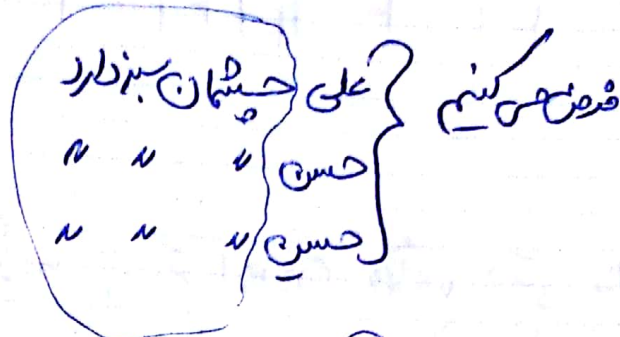 فرض می کنیم { علی چشمان سبز دارد
حسن 〃 〃 〃
حسین 〃 〃 〃